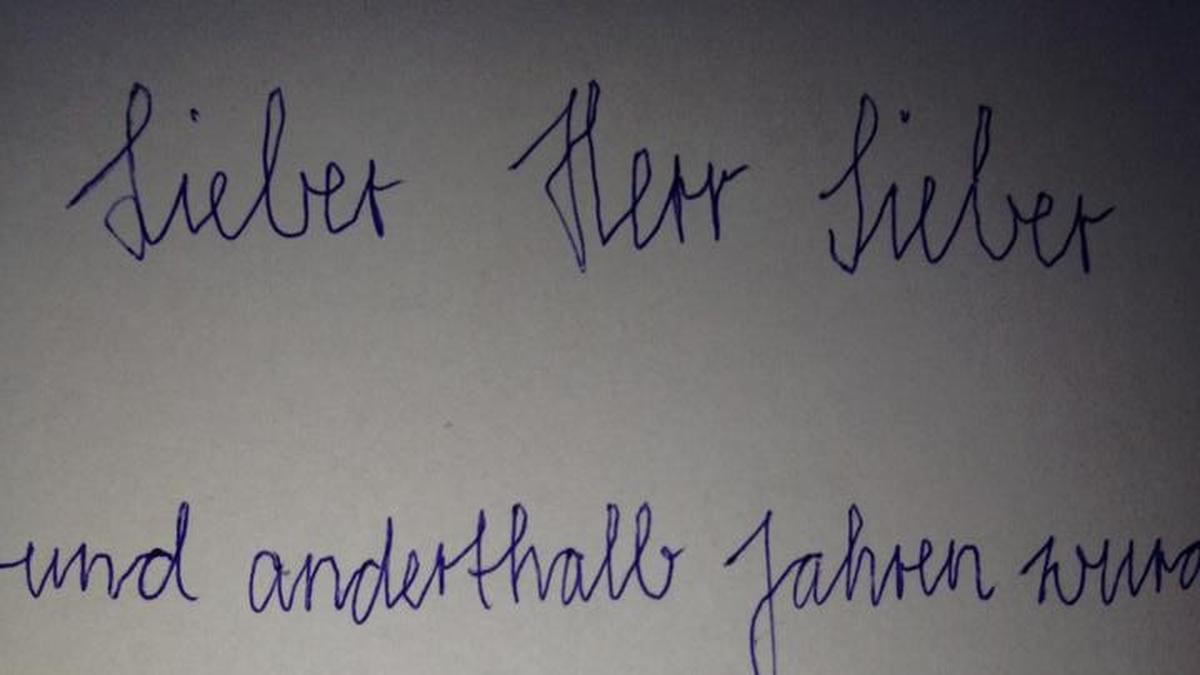 Lieber Herr Sieber
und anderthalb Jahren wurd